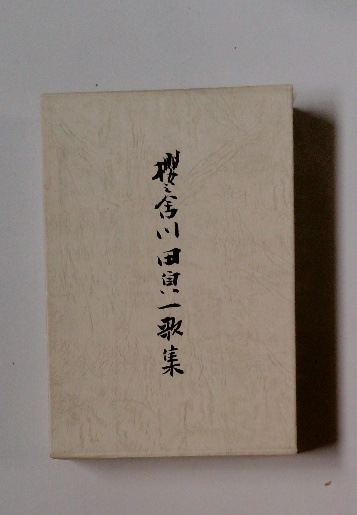 櫻之舎川田寅一歌集